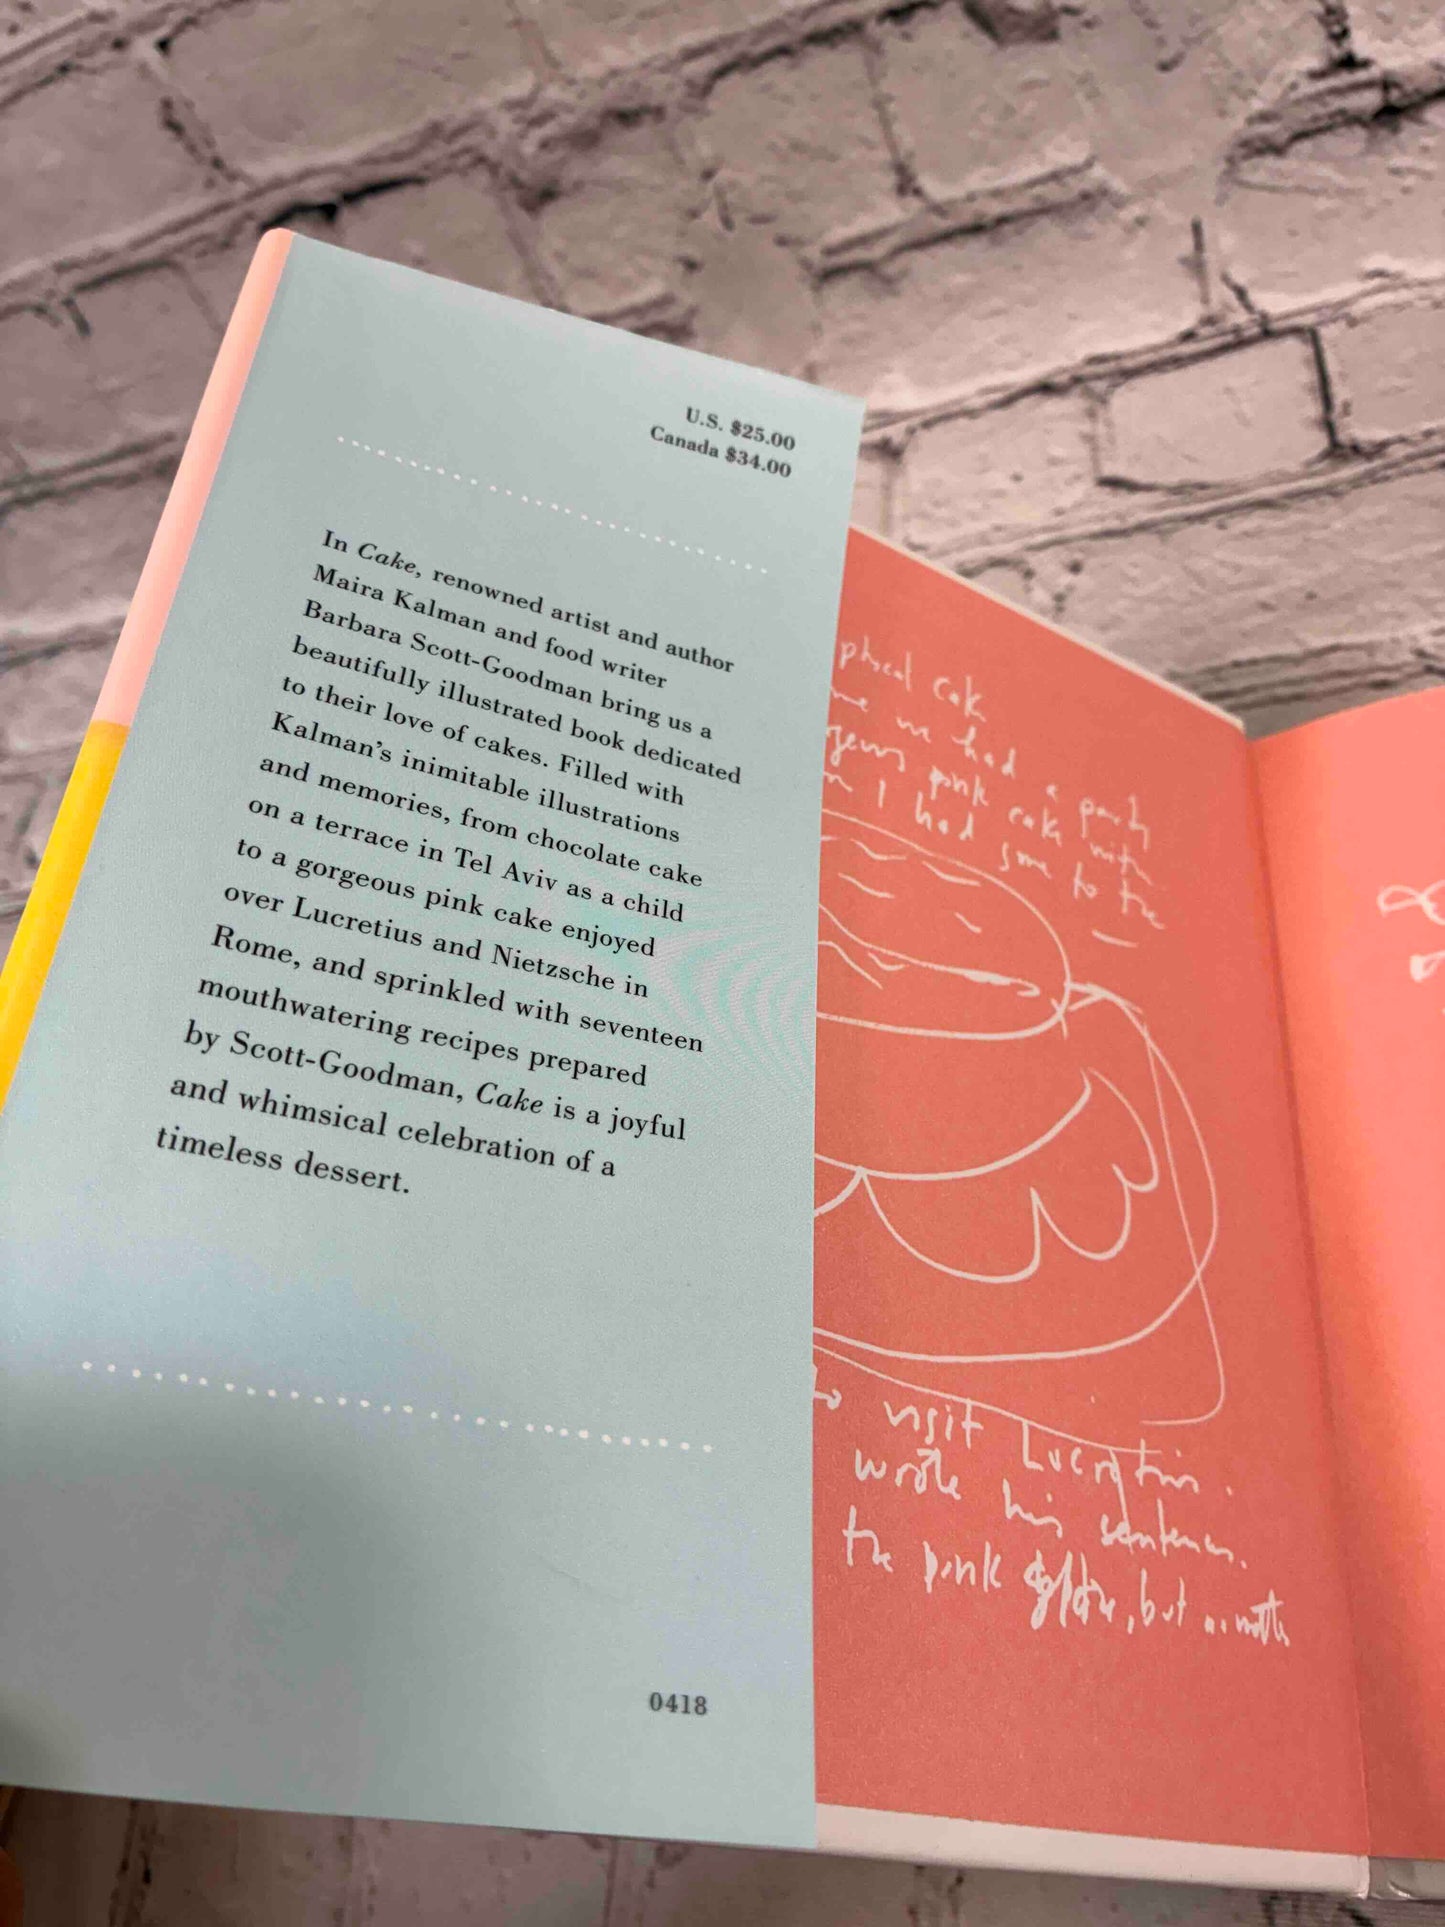 U.S. $25.00
Canada $34.00
In Cake, renowned artist and author
Maira Kalman and food writer
Barbara Scott-Goodman bring us a
beautifully illustrated book dedicated
to their love of cakes. Filled with
Kalman's inimitable illustrations
and memories, from chocolate cake
on a terrace in Tel Aviv as a child
to a gorgeous pink cake enjoyed
over Lucretius and Nietzsche in
Rome, and sprinkled with seventeen
mouthwatering recipes prepared
by Scott-Goodman, Cake is a joyful
and whimsical celebration of a
timeless dessert.
0418
cak
me we had a party
pink cake with
I had some to the
visit Lucretius.
wrote his sentences.
the pink, but no matter